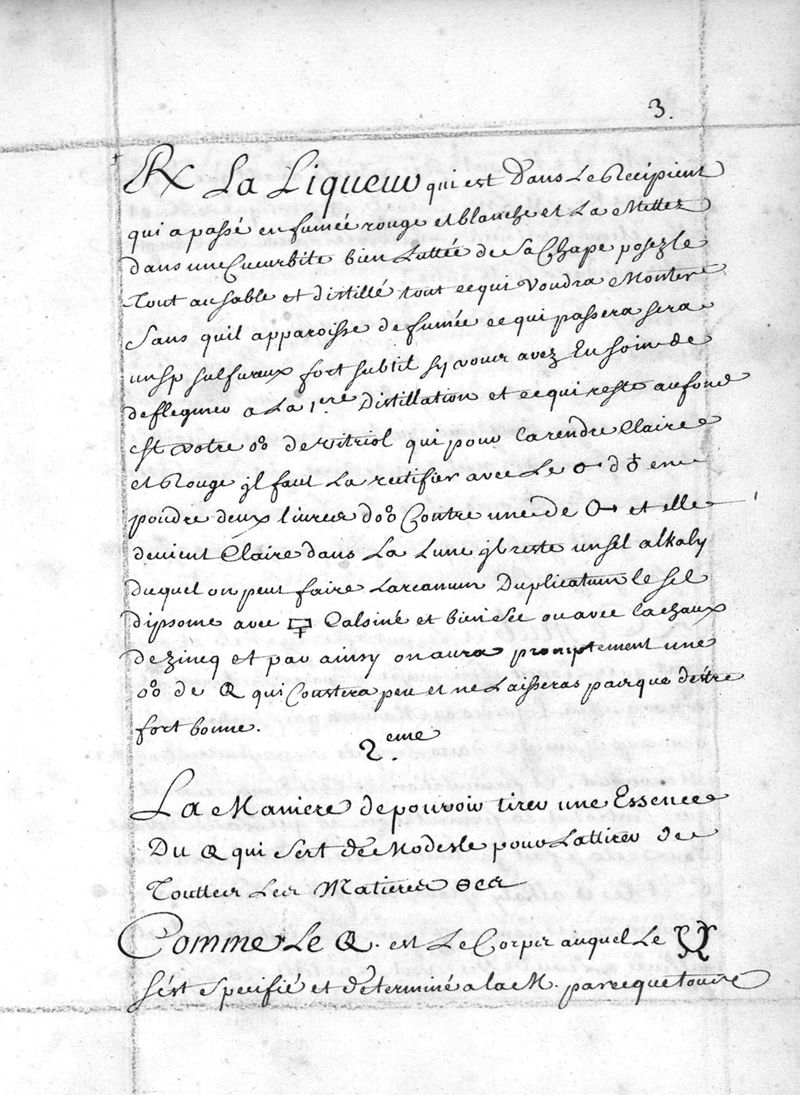 3.
℞ La Liqueur qui est dans Le Recipient
qui a passé en fumée rouge et blanche et La Mettez
dans une Cucurbite bien Luttée de Sa Chape posez le
Tout au sable et distillé tout ce qui voudra Monter
Sans quil apparoisse de fumée ce qui passera sera
un Sp sulfureux fort subtil sy vous avez Eu soin de
deflegmer a La 1.ere Distillation et ce qui reste au fond
est votre de vitriol qui pour la rendre Claire
et Rouge jl faut La rectifier avec Le en
poudre deux livres Contre une de et elle
devient Claire dans La Lune jl reste un sel alkaly
duquel on peut faire Larcanum Duplicatum le sel
dipsome avec Calsiné et bien sec ou avec la chaux
de zincq et par ainsy on aura promptement une
de qui Coustera peu et ne Laisseras pas que destre
fort bonne.
2.eme
La Maniere de pouvoir tirer une Essence
Du qui sert de Modesle pour Lattirer de
Touttes Les Matieres
Comme Le est Le Corps auquel Le
sést specifié et determiné a la M. parce que toute